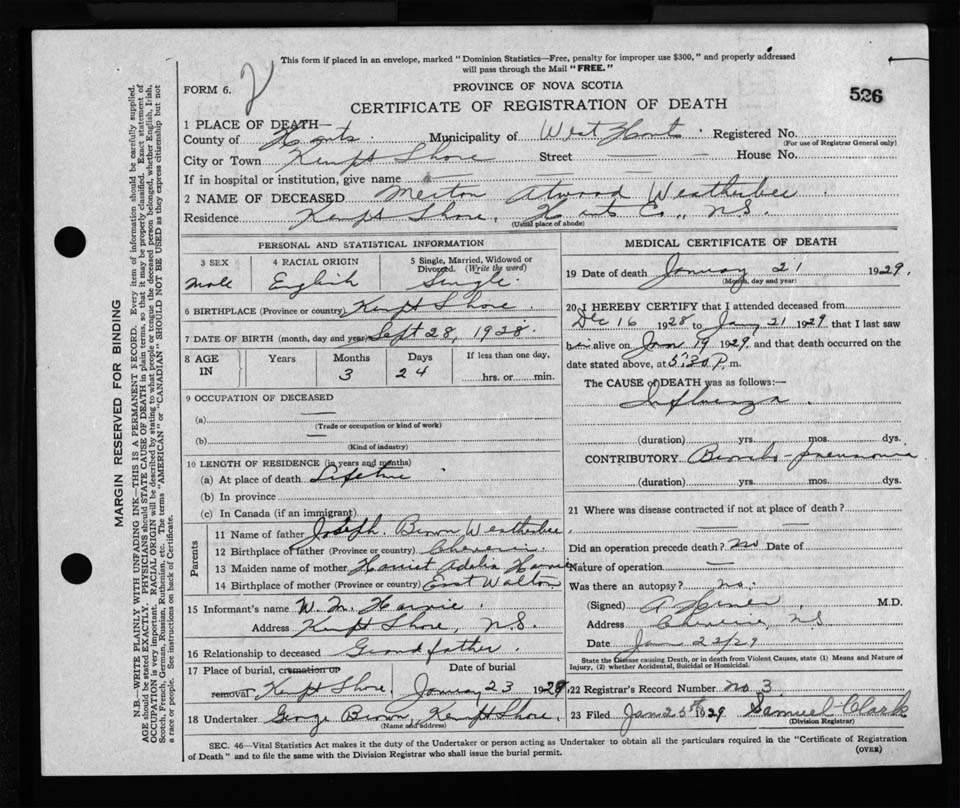 This form if placed in an envelope, marked "Dominion Statistics—Free, penalty for improper use $300," and properly addressed
will pass through the Mail "FREE."
FORM 6.
2
PROVINCE OF NOVA SCOTIA
CERTIFICATE OF REGISTRATION OF DEATH
526
1 PLACE OF DEATH—
County of Hants Municipality of West Hants Registered No.
(For use of Registrar General only)
City or Town Kempt Shore Street — — House No. —
If in hospital or institution, give name —
2 NAME OF DECEASED Merton Atwood Weatherbee
Residence Kempt Shore, Hants Co., N.S.
(Usual place of abode)
PERSONAL AND STATISTICAL INFORMATION
3 SEX 4 RACIAL ORIGIN 5 Single, Married, Widowed or Divorced. (Write the word)
male English Single
6 BIRTHPLACE (Province or country) Kempt Shore
7 DATE OF BIRTH (month, day and year) Sept 28, 1928
8 AGE IN Years Months Days If less than one day,
3 24 hrs. or min.
9 OCCUPATION OF DECEASED
(a) —
(Trade or occupation or kind of work)
(b) —
(Kind of industry)
10 LENGTH OF RESIDENCE (in years and months)
(a) At place of death Lifetime
(b) In province
(c) In Canada (if an immigrant)
Parents
11 Name of father Joseph Brown Weatherbee
12 Birthplace of father (Province or country) Cheverie
13 Maiden name of mother Harriet Adelia Harvie
14 Birthplace of mother (Province or country) East Walton
15 Informant's name W. M. Harvie
Address Kempt Shore, N.S.
16 Relationship to deceased Grandfather
17 Place of burial, cremation or removal Date of burial
Kempt Shore, January 23 1929
18 Undertaker George Brown, Kempt Shore,
(Name and address)
MEDICAL CERTIFICATE OF DEATH
19 Date of death January 21 1929.
(Month, day and year)
20 I HEREBY CERTIFY that I attended deceased from
Dec 16 1928 to Jany 21 1929 that I last saw
him alive on Jan 19 1929, and that death occurred on the
date stated above, at 5:30 P. m.
The CAUSE of DEATH was as follows:—
Influenza
(duration) yrs. mos. dys.
CONTRIBUTORY Broncho-pneumonia
(duration) yrs. mos. dys.
21 Where was disease contracted if not at place of death?
—
Did an operation precede death? No Date of
Nature of operation —
Was there an autopsy? no.
(Signed) M.D.
Address Cheverie, NS
Date Jan 22/29
State the Disease causing Death, or in death from Violent Causes, state (1) Means and Nature of
Injury, (2) whether Accidental, Suicidal or Homicidal.
22 Registrar's Record Number No 3
23 Filed Jan 25th 1929 Samuel Clark
(Division Registrar)
SEC. 46—Vital Statistics Act makes it the duty of the Undertaker or person acting as Undertaker to obtain all the particulars required in the "Certificate of Registration
of Death" and to file the same with the Division Registrar who shall issue the burial permit.
(OVER)
MARGIN RESERVED FOR BINDING
N.B.—WRITE PLAINLY WITH UNFADING INK—THIS IS A PERMANENT RECORD. Every item of information should be carefully supplied.
AGE should be stated EXACTLY. PHYSICIANS should STATE CAUSE OF DEATH in plain terms, so that it may be properly classified. Exact statement of
OCCUPATION is very important. RACIAL ORIGIN will be described by stating to what people or tongue the deceased person belonged, whether English, Irish,
Scotch, French, German, Russian, Ruthenian, etc. The terms "AMERICAN" or "CANADIAN" SHOULD NOT BE USED as they express citizenship but not
a race or people. See instructions on back of Certificate.